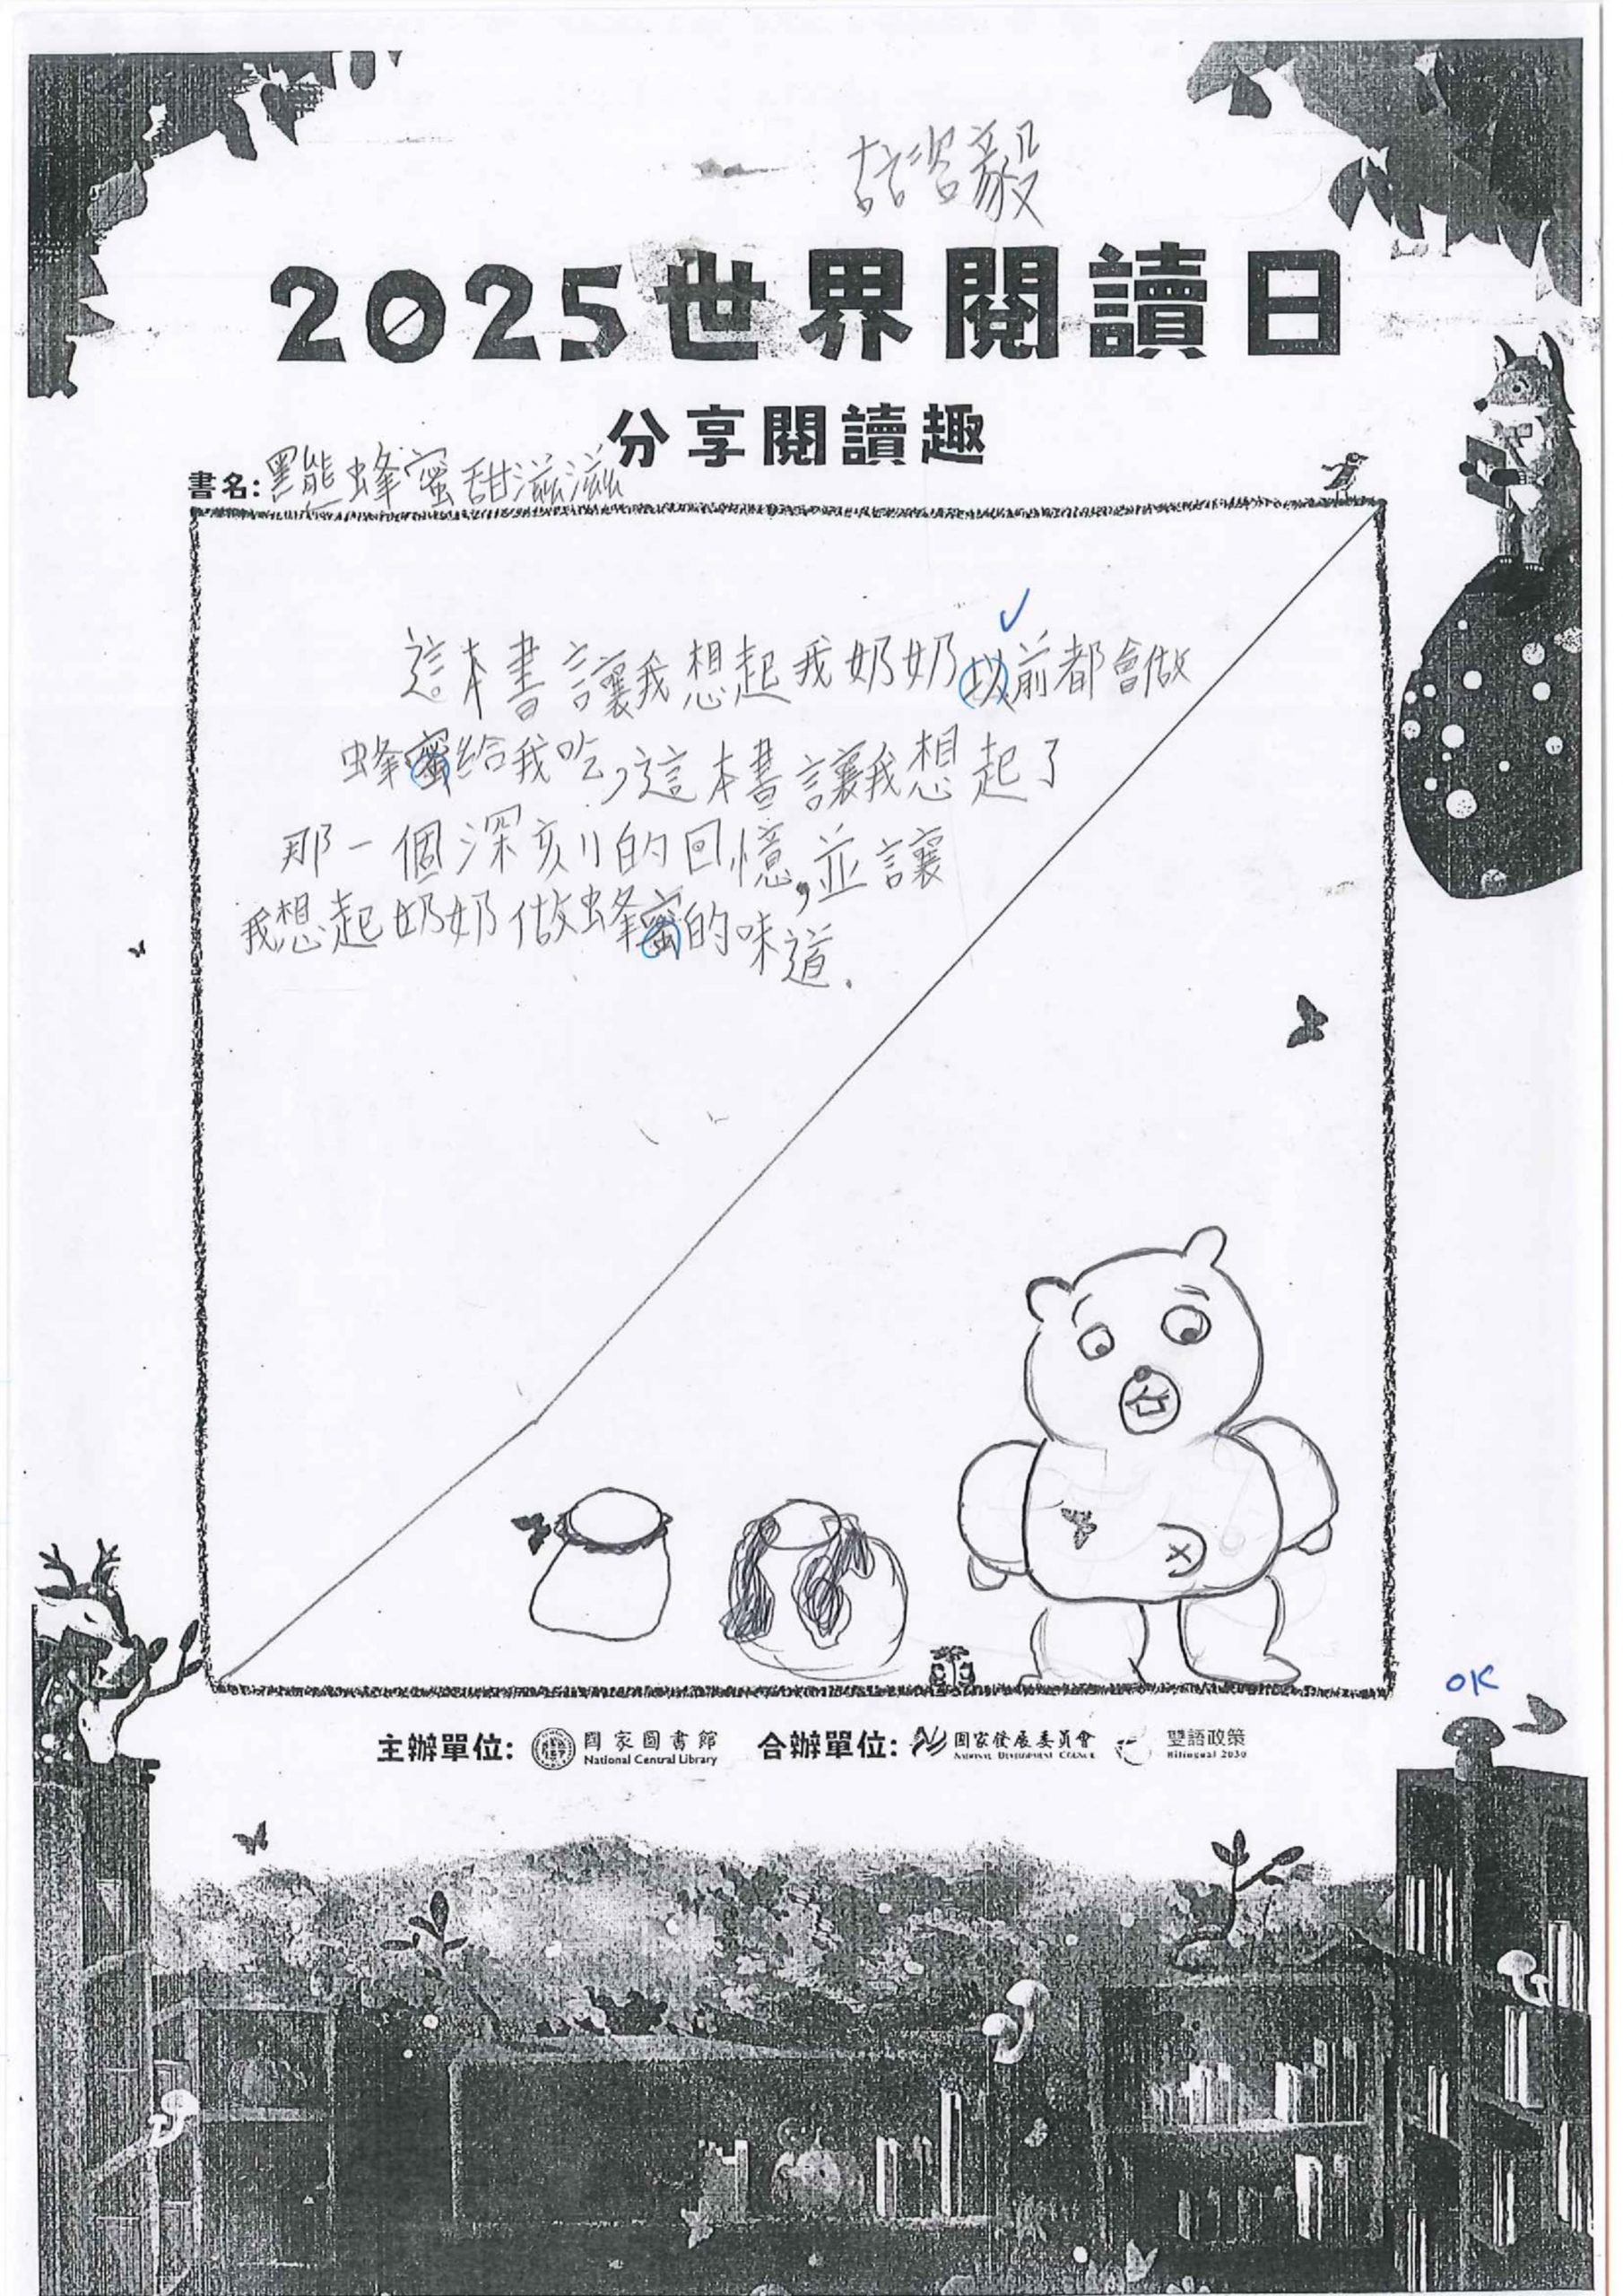 2025世界閱讀日
分享閱讀趣
書名:黑熊蜂蜜甜滋滋
這本書讓我想起我奶奶以前都會做
蜂蜜給我吃,這本書讓我想起了
那一個深刻的回憶,並讓
我想起奶奶做蜂蜜的味道.
OK
主辦單位: 國家圖書館 National Central Library 合辦單位: 國家發展委員會 National Development Council 雙語政策 Bilingual 2030